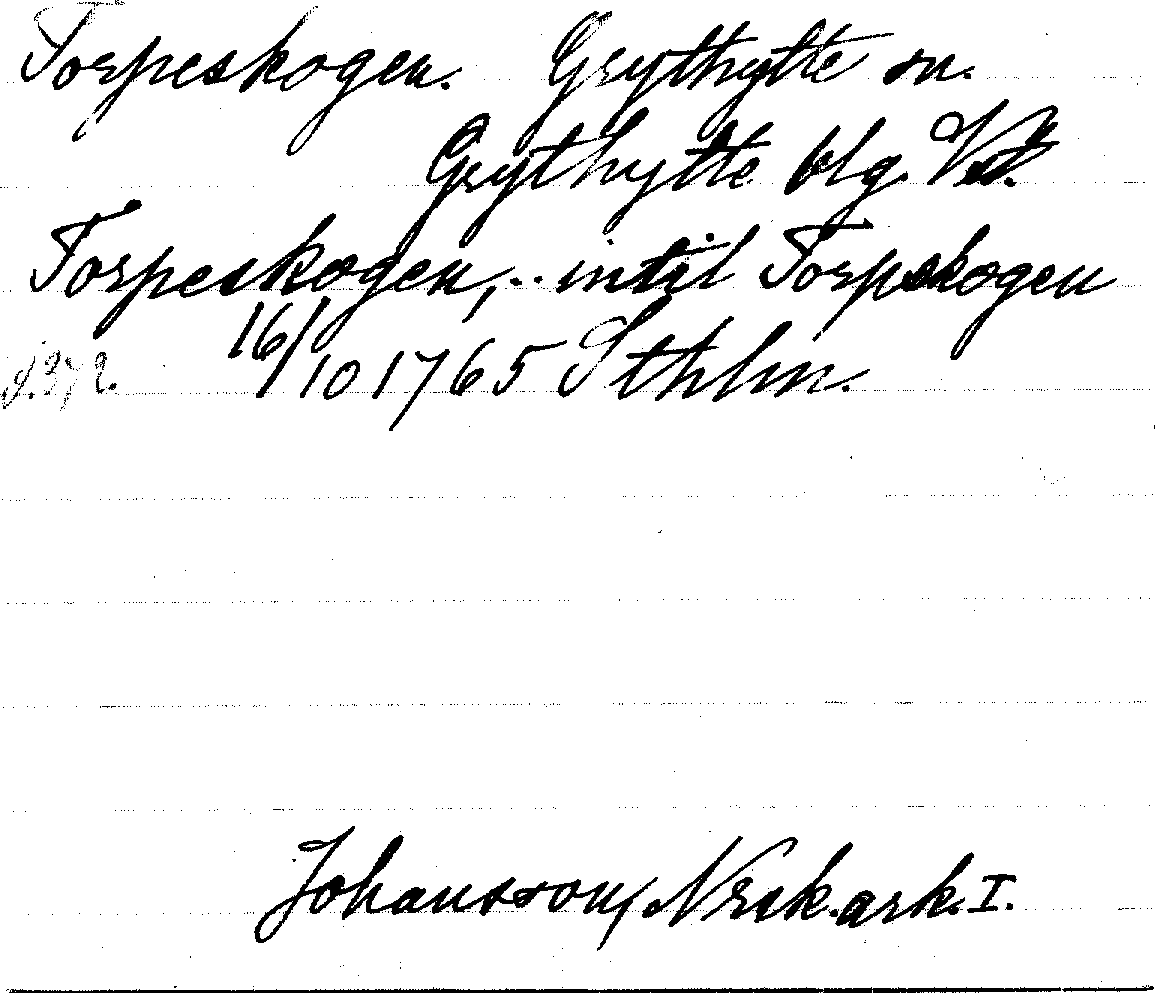 Torpeskogen. Grythytte sn.
Grythytte blg. Vstm.
Torpeskogen, .. intil Torpskogen
s. 372. 16/10 1765 Sthlm.
Johansson, Nrsk. ark. I.